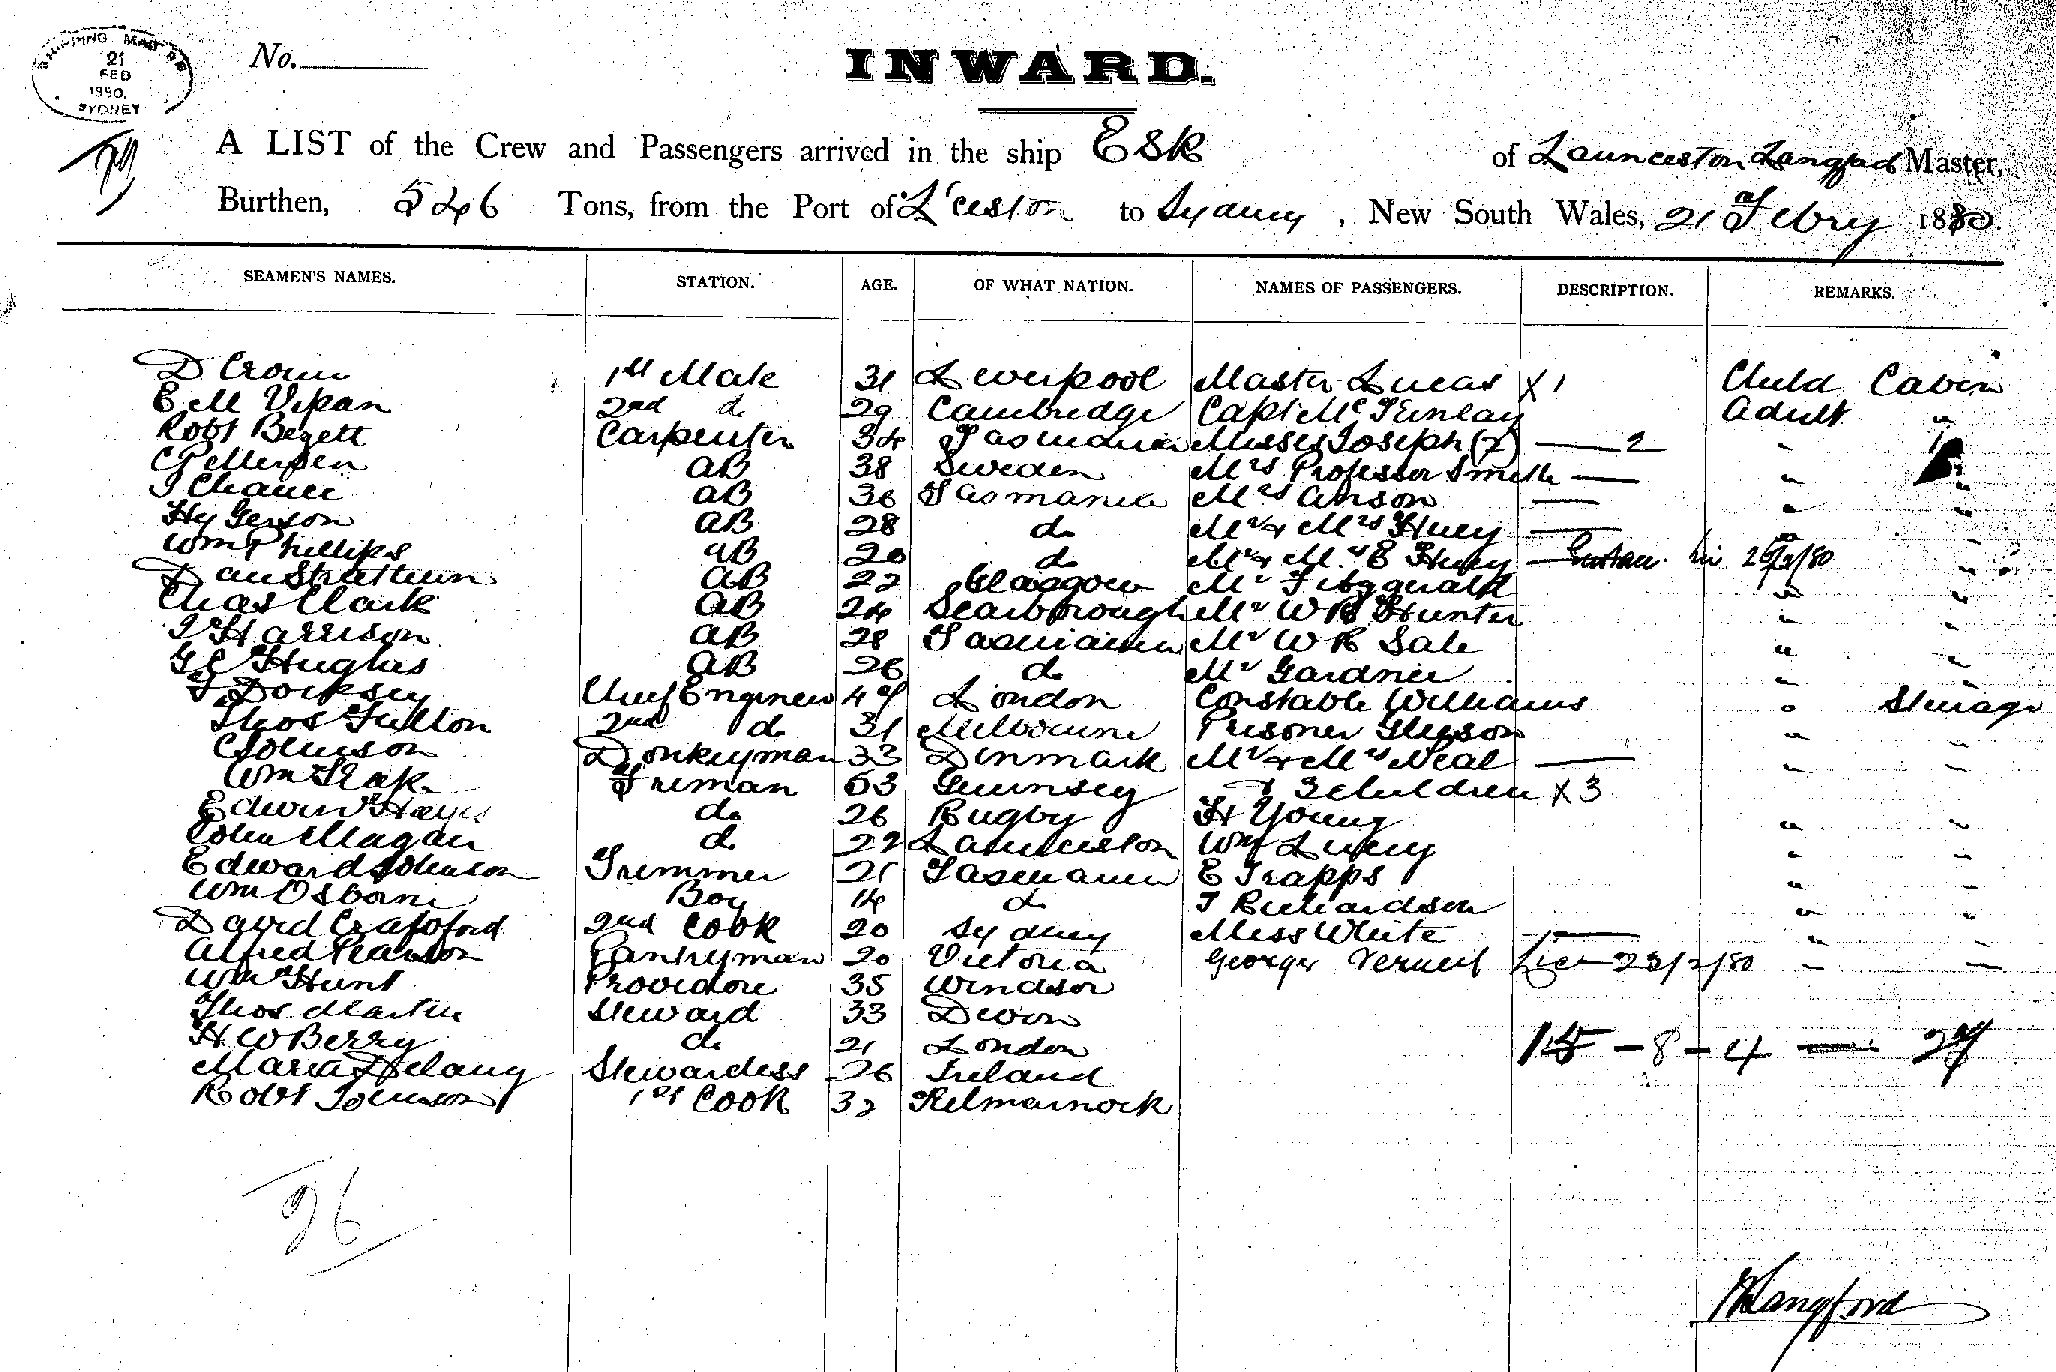 SHIPPING MASTER
21
FEB
1880.
SYDNEY
No.
INWARD.
A LIST of the Crew and Passengers arrived in the ship Esk of Launceston Langford Master,
Burthen, 526 Tons, from the Port of L'ceston to Sydney, New South Wales, 21 Febry 1880.
SEAMEN'S NAMES. STATION. AGE. OF WHAT NATION. NAMES OF PASSENGERS. DESCRIPTION. REMARKS.
D 1st Mate 31 Liverpool Master Lucas X 1 Child Cabin
E M Vipan 2nd do 29 Cambridge Capt McFinlay Adult "
Robt Begett Carpenter 34 Tasmania Misses Joseph (2) — 2 "
C Pettersen AB 38 Sweden Mrs Professor Smith — " "
J Chance AB 36 Tasmania Mrs Anson — " "
Hy Gerson AB 28 do Mr & Mrs Huey —
Wm Phillips AB 20 do Mr & Mrs E Huey — 2/80
Dan AB 22 Glasgow Mr Fitzgerald " "
Chas Clark AB 24 Scarborough Mr W R Hunter " "
J Harrison AB 28 Tasmania Mr W R Sale " "
G E Hughes AB 26 do Mr Gardner " "
Chief Engineer London Constable Williams " Steerage
Thos Fulton 2nd do 31 Melbourne Prisoner Gleeson " "
C Johnson Donkeyman 33 Dinmark Mr & Mrs Neal — " "
Wm Fireman 53 Guernsey & 3 Children X 3
Edwin Hayes do 26 Rugby H Young " "
John Magan do 22 Launceston Wm Lucy " "
Edward Johnson Trimmer 21 Tasmania E Trapps " "
Wm Osborne Boy 14 do T Richardson " "
David Crawford 2nd Cook 20 Sydney Miss White — " "
Alfred Pearson Pantryman 20 Victoria George 23/2/80 " "
Wm Hunt Providore 35 Windsor
Thos Martin Steward 33 Devon
H W Berry do 21 London 15 - 8 - 4 — 27
Maria Delany Stewardess 26 Ireland
Robt Johnson 1st Cook 32 Kilmarnock
26
Langford